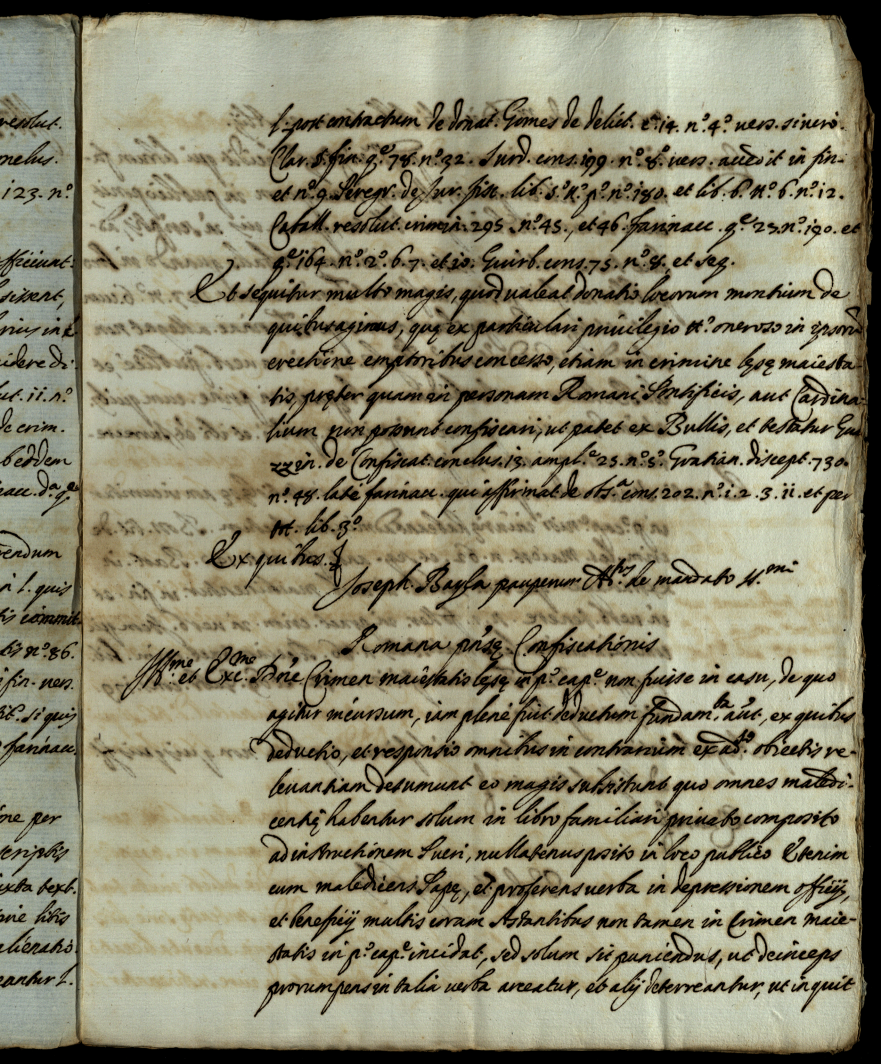 resolut.
melus.
123. nº
officiunt.
sissent,
cidere di-
ut. 11. nº
de crim.
eodem
vendum
n l. quis
tis commit
tis nº 86.
fin. vers.
si quis
farinac.
ine per
scriptis
iuxta text.
litis
alienatio.
eantur l.
l. post contractum de donat. Gomes de delict. c. 14. nº 4º vers. si vero.
Clar. §. fin. qº 78. nº 32. Surd. cons. 199. nº 8º vers. accedit in fin.
et nº 9. Peregr. de Jur. fisc. lib. 5º tº pº nº 180. et lib. 6. tº 6. nº 12.
Caball. resolut. crimin. 295. nº 45., et 46. farinacc. qº 23. nº 190. et
qº 164. nº 2º 6. 7. et 10. Guirb. cons. 75. nº 8. et seq.
Et sequitur multo magis, quod valeat donatio locorum montium de
quibus agimus, quę ex particulari privilegio tº oneroso in ipsorũ
erectione emptoribus concesso, etiam in crimine lęsę maiesta-
tis pręter quam in personam Romani Pontificis, aut Cardina-
lium non possunt confiscari, ut patet ex Bullis, et testatur Gua
zzin. de Confiscat. conclus. 13. ampl.e 25. nº 5º Gratian. discept. 730.
nº 48. late farinacc. qui affirmat de obs.a cons. 202. nº 1. 2. 3. 11. et per
tot. lib. 3º
Ex quibus. &
Joseph. Bayla pauperum de mandato
Romana pñsę Confiscationis
Ill.me et Exc.me Dñe Crimen maiestatis lęsę in pº capº non fuisse in casu, de quo
agitur incursum, iam plenè fuit deductum fundam.ta aũt, ex quibus
deductio, et responsio omnibus in contrarium ex ad.o obiectis re-
levantiam desumunt eo magis subsistunt quo omnes maledi-
centię habentur solum in libro familiari privato composito
ad instructionem Pueri, nullatenus posito in loco publico Etenim
cum maledicens Papę, et proferens verba in depressionem officij,
et beneficij multis coram Astantibus non tamen in Crimen maie-
statis in pº capº incidat, sed solum sit puniendus, ut deinceps
prorumpens in talia verba arceatur, et alij deterreantur, ut inquit